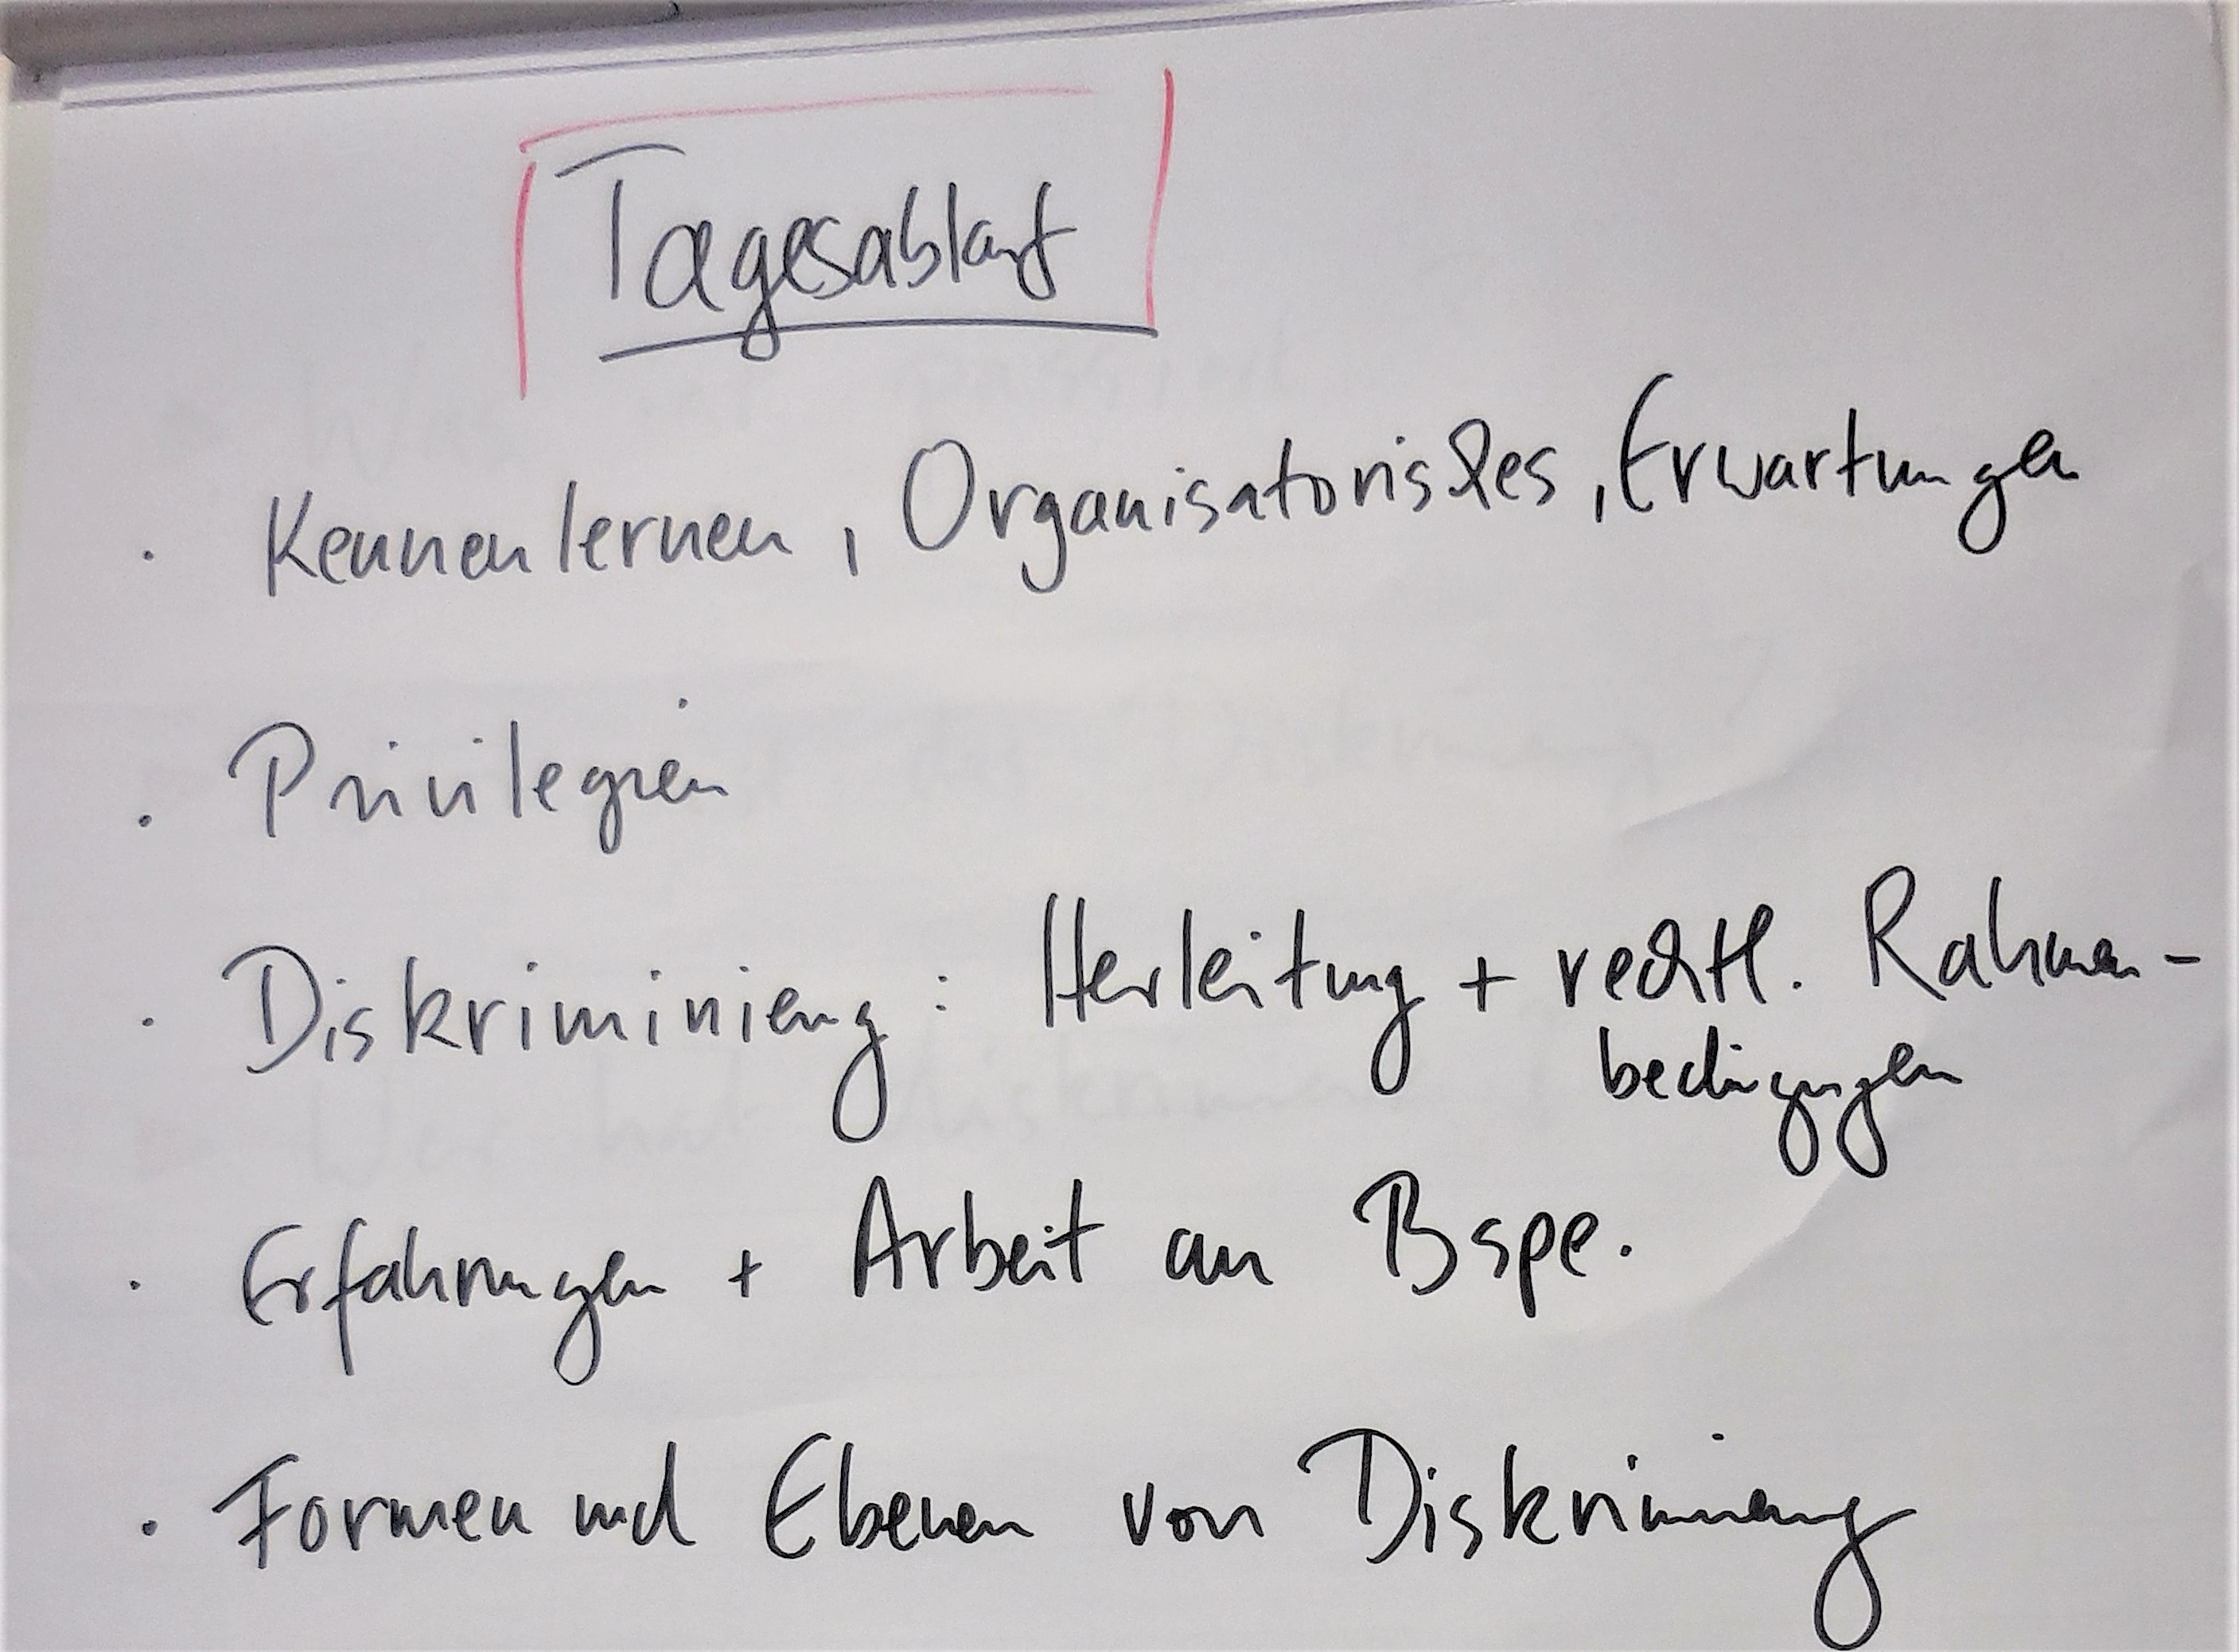 Tagesablauf
· Kennenlernen, Organisatorisches, Erwartungen
· Privilegien
· Diskriminierung: Herleitung + rechtl. Rahmen-
bedingungen
· Erfahrungen + Arbeit an Bspe.
· Formen und Ebenen von Diskriminierung